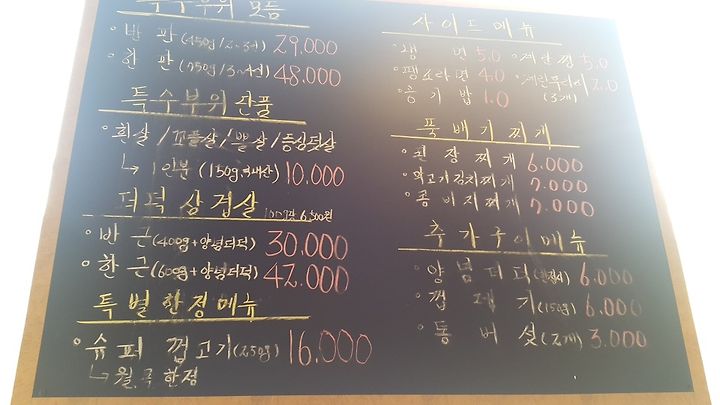 특수부위 모듬
·반 판 (450g/2~3인) 29,000
·한 판 (750g/3~4인) 48,000
특수부위 단품
·흰살/꼬들살/뽈살/등심덧살
↳ 1인분 (150g, 국내산) 10,000
더덕 삼겹살 100g당 6,500원
·반 근 (400g+양념더덕) 30,000
·한 근 (600g+양념더덕) 42,000
특별한정메뉴
·슈퍼 껍고기 (250g) 16,000
↳ 월,목 한정
사이드메뉴
·냉 면 5.0 ·계란찜 5.0
4.0 ·계란후라이 2.0
(3개)
·공기밥 1.0
뚝배기찌개
·된 장 찌 개 6,000
·김치찌개 7,000
·콩 비 지 찌 개 7,000
추가구이메뉴
·양념더덕 6,000
·껍 데 기 (150g) 6,000
·통 버 섯 (2개) 3,000